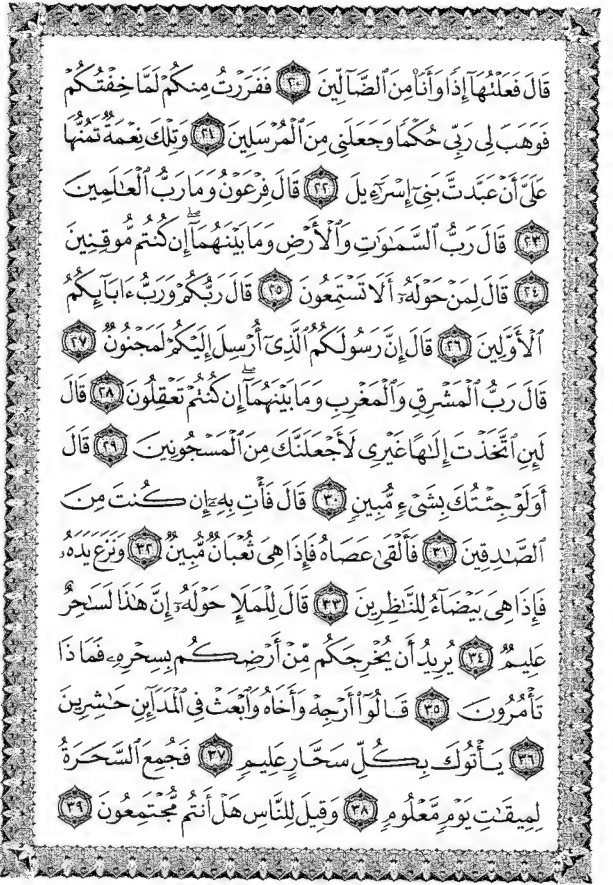 قَالَ فَعَلْتُهَآ إِذًا وَأَنَا۠ مِنَ ٱلضَّآلِّينَ ٢٠ فَفَرَرْتُ مِنكُمْ لَمَّا خِفْتُكُمْ
فَوَهَبَ لِى رَبِّى حُكْمًا وَجَعَلَنِى مِنَ ٱلْمُرْسَلِينَ ٢١ وَتِلْكَ نِعْمَةٌ تَمُنُّهَا
عَلَىَّ أَنْ عَبَّدتَّ بَنِىٓ إِسْرَٰٓءِيلَ ٢٢ قَالَ فِرْعَوْنُ وَمَا رَبُّ ٱلْعَٰلَمِينَ
٢٣ قَالَ رَبُّ ٱلسَّمَٰوَٰتِ وَٱلْأَرْضِ وَمَا بَيْنَهُمَآ ۖ إِن كُنتُم مُّوقِنِينَ
٢٤ قَالَ لِمَنْ حَوْلَهُۥٓ أَلَا تَسْتَمِعُونَ ٢٥ قَالَ رَبُّكُمْ وَرَبُّ ءَابَآئِكُمُ
ٱلْأَوَّلِينَ ٢٦ قَالَ إِنَّ رَسُولَكُمُ ٱلَّذِىٓ أُرْسِلَ إِلَيْكُمْ لَمَجْنُونٌ ٢٧
قَالَ رَبُّ ٱلْمَشْرِقِ وَٱلْمَغْرِبِ وَمَا بَيْنَهُمَآ ۖ إِن كُنتُمْ تَعْقِلُونَ ٢٨ قَالَ
لَئِنِ ٱتَّخَذْتَ إِلَٰهًا غَيْرِى لَأَجْعَلَنَّكَ مِنَ ٱلْمَسْجُونِينَ ٢٩ قَالَ
أَوَلَوْ جِئْتُكَ بِشَىْءٍ مُّبِينٍ ٣٠ قَالَ فَأْتِ بِهِۦٓ إِن كُنتَ مِنَ
ٱلصَّٰدِقِينَ ٣١ فَأَلْقَىٰ عَصَاهُ فَإِذَا هِىَ ثُعْبَانٌ مُّبِينٌ ٣٢ وَنَزَعَ يَدَهُۥ
فَإِذَا هِىَ بَيْضَآءُ لِلنَّٰظِرِينَ ٣٣ قَالَ لِلْمَلَإِ حَوْلَهُۥٓ إِنَّ هَٰذَا لَسَٰحِرٌ
عَلِيمٌ ٣٤ يُرِيدُ أَن يُخْرِجَكُم مِّنْ أَرْضِكُم بِسِحْرِهِۦ فَمَاذَا
تَأْمُرُونَ ٣٥ قَالُوٓا۟ أَرْجِهْ وَأَخَاهُ وَٱبْعَثْ فِى ٱلْمَدَآئِنِ حَٰشِرِينَ
٣٦ يَأْتُوكَ بِكُلِّ سَحَّارٍ عَلِيمٍ ٣٧ فَجُمِعَ ٱلسَّحَرَةُ
لِمِيقَٰتِ يَوْمٍ مَّعْلُومٍ ٣٨ وَقِيلَ لِلنَّاسِ هَلْ أَنتُم مُّجْتَمِعُونَ ٣٩